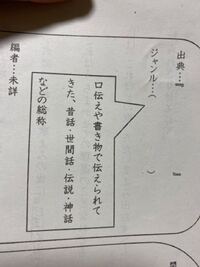 出典…
ジャンル…（　　　）
口伝えや書き物で伝えられて
きた、昔話・世間話・伝説・神話
などの総称
編者…未詳